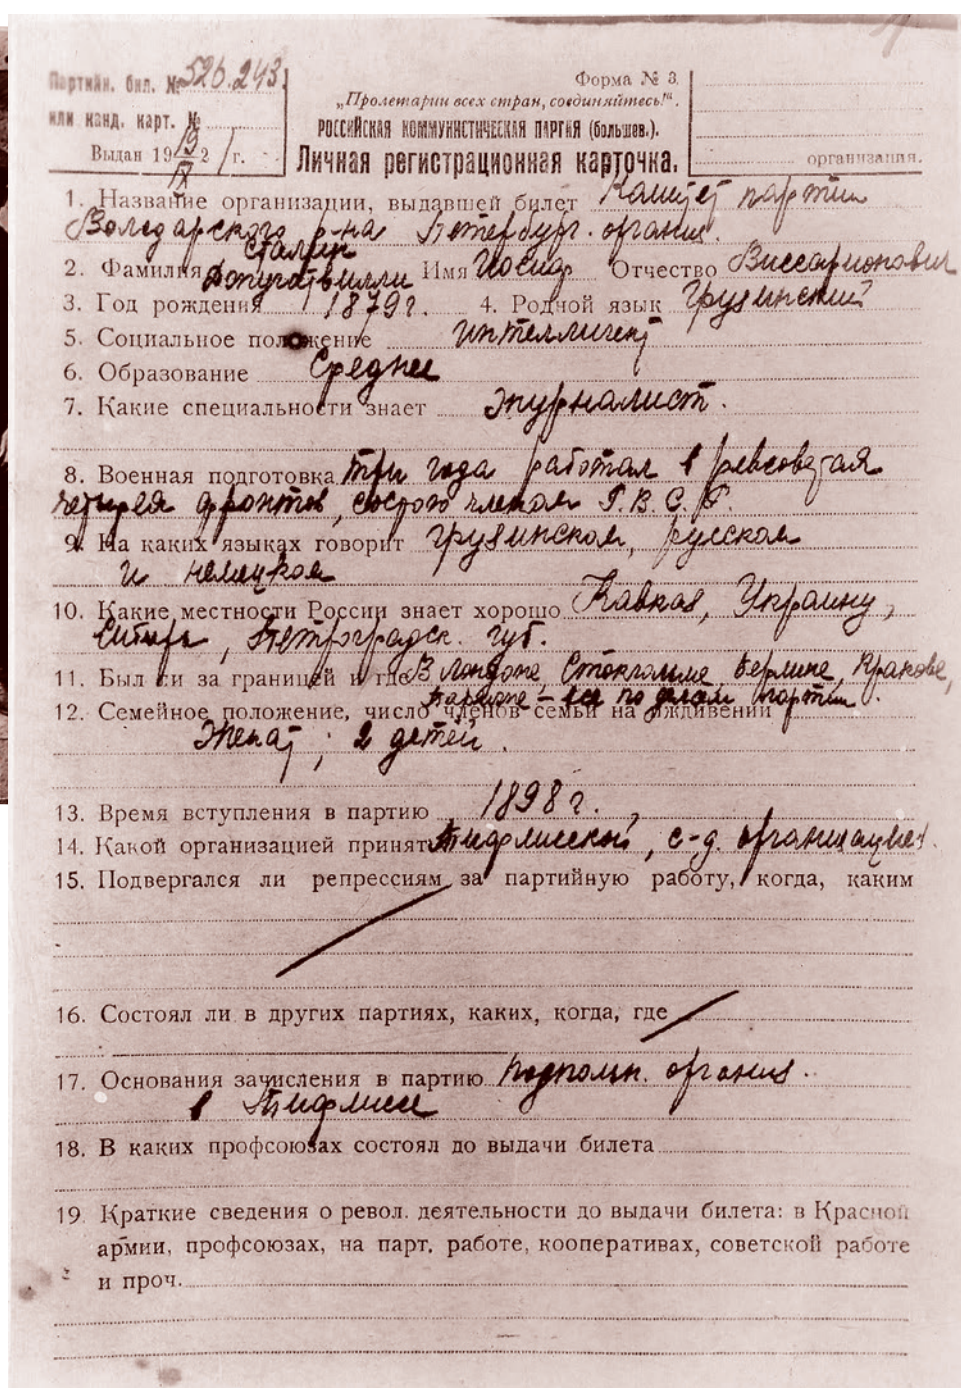 Партийн. бил. № 526.243.
или канд. карт. №
Выдан 19 19/IX 21 г.
Форма № 3.
„Пролетарии всех стран, соединяйтесь!“.
РОССИЙСКАЯ КОММУНИСТИЧЕСКАЯ ПАРТИЯ (большев.).
Личная регистрационная карточка.
организация.
1. Название организации, выдавшей билет Комитет партии
Володарского р-на Петербург. органиц.
Сталин
2. Фамилия Джугашвилли Имя Иосиф Отчество Виссарионович
3. Год рождения 1879 г. 4. Родной язык Грузинский
5. Социальное положение интеллигент
6. Образование Среднее
7. Какие специальности знает журналист.
8. Военная подготовка три года работал в ревсоветах
четырех фронтов, состою членом Р. В. С. Р.
9. На каких языках говорит грузинском, русском
и немецком
10. Какие местности России знает хорошо Кавказ, Украину,
Сибирь, Петроградск. губ.
11. Был ли за границей и где В Лондоне, Стокгольме, Берлине, Кракове,
все по делам партии.
12. Семейное положение, число членов семьи на иждивении
Женат; 2 детей.
13. Время вступления в партию 1898 г.
14. Какой организацией принят Тифлисской, с-д. организацией.
15. Подвергался ли репрессиям за партийную работу, когда, каким
16. Состоял ли в других партиях, каких, когда, где
17. Основания зачисления в партию подпольн. органиц.
в Тифлисе
18. В каких профсоюзах состоял до выдачи билета
19. Краткие сведения о револ. деятельности до выдачи билета: в Красной
армии, профсоюзах, на парт. работе, кооперативах, советской работе
и проч.